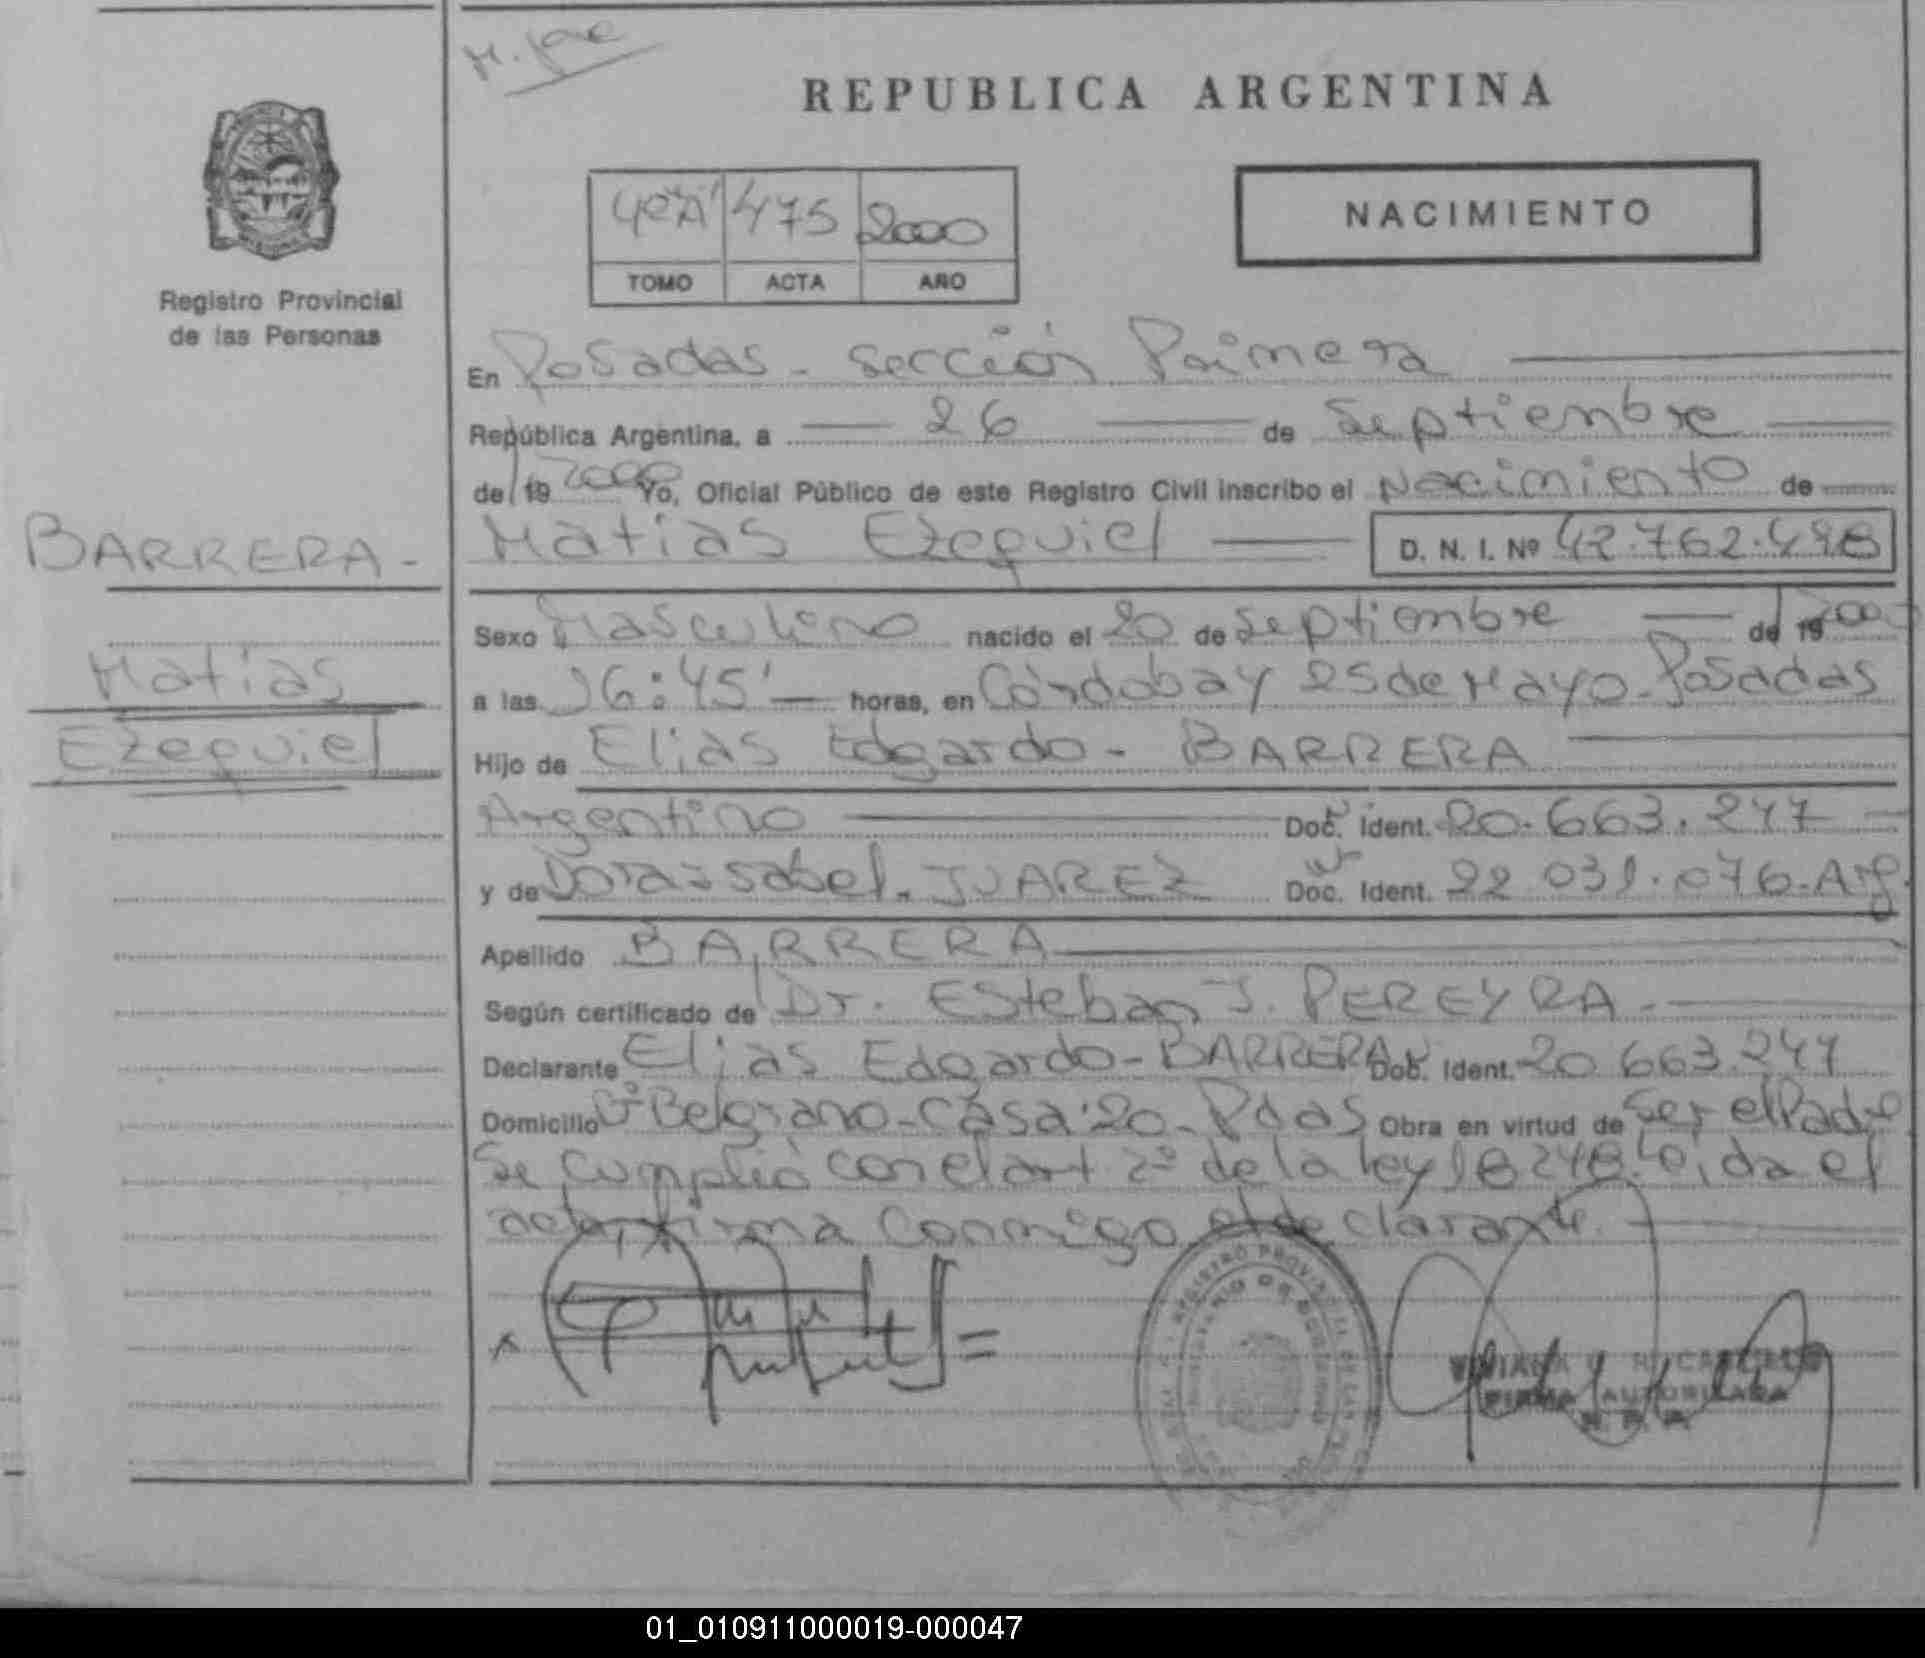 REPUBLICA ARGENTINA
Registro Provincial
de las Personas
4º "A" 475 2000
TOMO ACTA AÑO
NACIMIENTO
En Posadas - Sección Primera
República Argentina, a 26 de Septiembre
de 19 2000 Yo, Oficial Público de este Registro Civil inscribo el Nacimiento de
BARRERA -
Matias Ezequiel D. N. I. Nº 42.762.498
Sexo Masculino nacido el 20 de Septiembre de 19 2000
Matias
a las 16:45' horas, en Córdoba y 25 de Mayo. Posadas
Ezequiel
Hijo de Elias Edgardo - BARRERA
Argentino Doc. Ident. 20.663.247
y de Dora Isabel. JUAREZ Doc. Ident. 22.031.076 - Arg.
Apellido BARRERA
Según certificado de Dr. Esteban J. PEREYRA -
Declarante Elias Edgardo - BARRERA Doc. Ident. 20.663.247
Domicilio Bº Belgrano - Casa: 20 - Pdas Obra en virtud de Ser el Padre
Se cumplió con el art 2º de la ley 18248. Leida el
acta, firma conmigo el declarante.
REGISTRO PROVINCIAL DE LAS PERSONAS
FIRMA AUTORIZADA
01_010911000019-000047